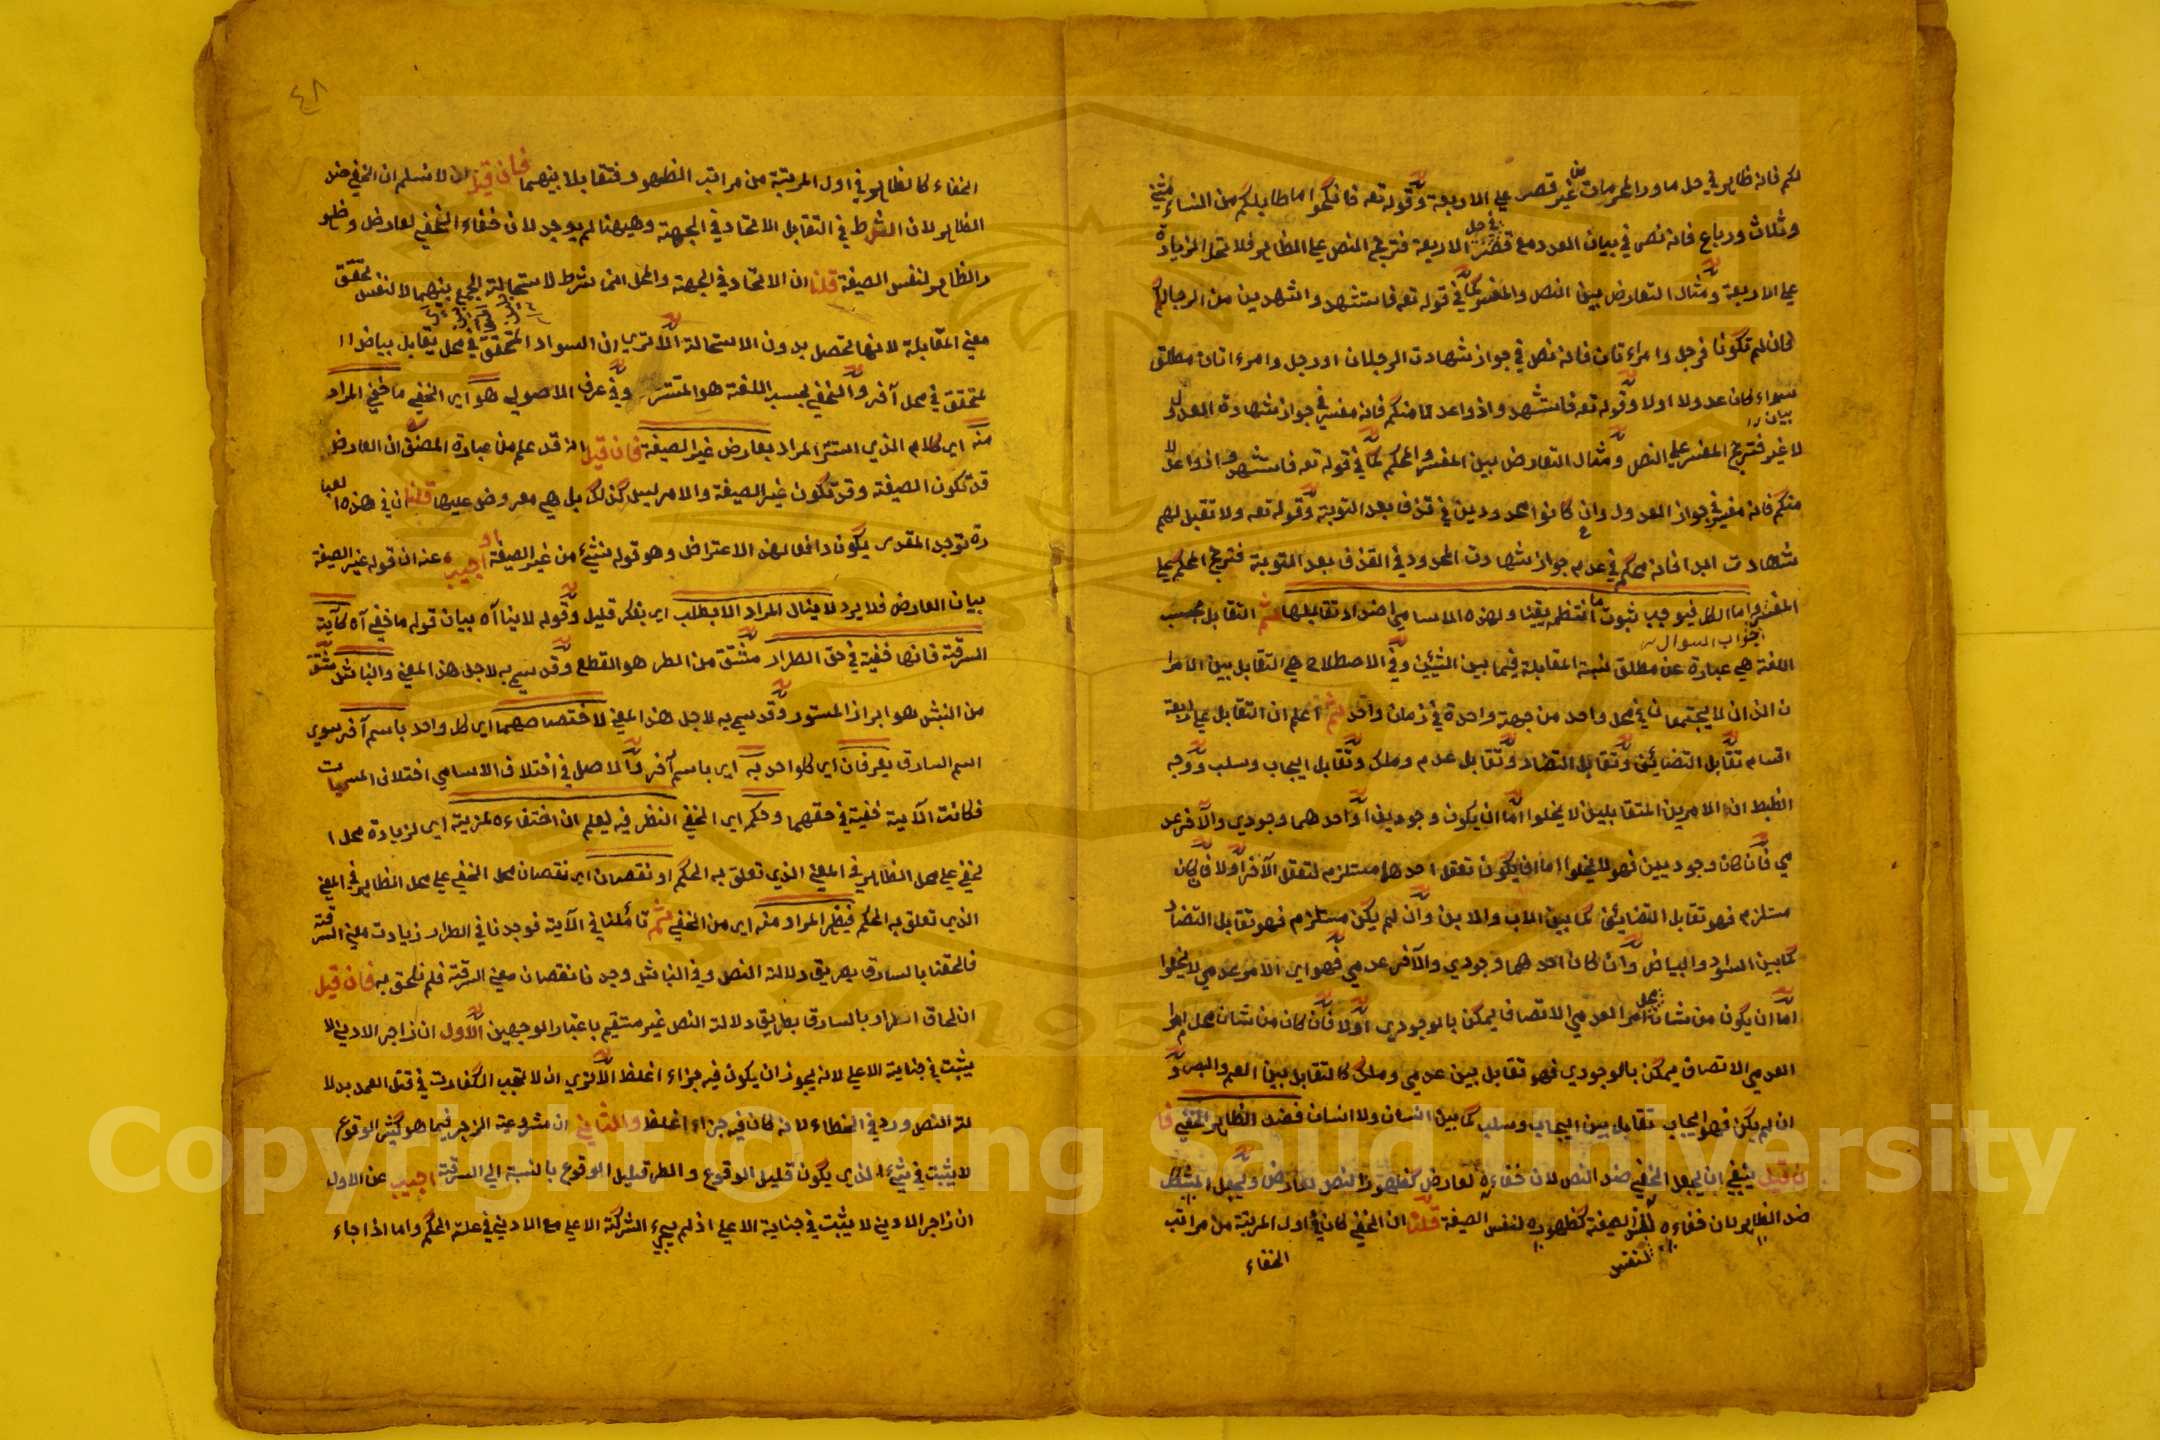 لكم فانه ظاهر في حل ما وراء المحرمات من غير قصر علي الاربعة وقوله تعه فانكحوا ما طاب لكم من النساء مثني
وثلاث ورباع فانه نص في بيان العدد مع قصر حل الاربعة فترجح النص علي الظاهر فلا تحل الزيادة
علي الاربعة ومثال التعارض بين النص والمفسر كما في قوله تعه فاستشهدو اشهدين من الرجالكم
فان لم تكونا فرجل وامراءتان فانه نص في جواز شهادت الرجلان او رجل وامراءتان مطلق
سواء كان عدولا اولا وقوله تعه فاستشهدو اذوا عدل منكم فانه مفسر في جواز شهادة العدل
لا غير فترجح المفسر علي النص ومثال التعارض بين المفسر والمحكم كما في قوله تعه فاستشهدو اذوا عدل
منكم فانه مفسر في جواز العدول وان كانوا محدودين في قذف بعد التوبة وقوله تعه ولا تقبلو لهم
شهادت ابدا فانه محكم في عدم جواز شهادت المحدود في القذف بعد التوبة فترجح المحكم علي
المفسر واما الكل فيوجب ثبوت ما انتظمه يقينا ولهذه الاسامي اضداد تقابلها ثم التقابل بحسب
جواب السوال
اللغة هي عبارة عن مطلق نسبة المقابلة فيما بين الشيئين وفي الاصطلاح هي التقابل بين الامرا
ن الذان لا يجتمعان في محل واحد من جهة واحدة في زمان واحد ثم اعلم ان التقابل علي اربعة
اقسام تقابل التضائف وتقابل التضاد وتقابل عدم وملكه وتقابل ايجاب وسلب ووجه
الضبط ان الامرين المتقابلين لا يخلوا اما ان يكون وجودين او احدهما وجودي والآخر عد
مي فان كان وجوديين فهو لا يخلوا اما ان يكون تعقل احدهما مستلزم لتعقل الآخر اولا فان كان
مستلزم فهو تقابل التضائف كما بين الاب والابن وان لم يكن مستلزم فهو تقابل التضاد
كما بين السواد والبياض وان كان احدهما وجودي والآخر عدمي فهو اي الامر عدمي لا يخلوا
اما ان يكون من شان محل امر العدمي الاتصاف يمكن بالوجودي اولا فان كان من شان محل امر
العدمي الاتصاف يمكن بالوجودي فهو تقابل بين عدمي وملكه كالتقابل بين العمي والبصر و
ان لم يكن فهو ايجاب تقابل بين ايجاب وسلب كما بين انسان ولا انسان فضد الظاهر الخفي فا
ن قيل ينبغي ان يجعل الخفي ضد النص لان خفاءه لعارض كظهور النص لعارض ويجعل المشكل
ضد الظاهر لان خفاءه لنفس الصيغة كظهوره لنفس الصيغة قلنا ان الخفي كان في اول المرتبة من مراتب
الخفاء
٤٨
الخفاء كالظاهر في اول المرتبة من مراتب الظهور فتقابلا بينهما فان قيل ان لا نسلم ان الخفي ضد
الظاهر لان الشرط في التقابل الاتحاد في الجهة وههنا لم يوجد لان خفاء الخفي لعارض وظهو
ر الظاهر لنفس الصيغة قلنا ان الاتحاد في الجهة والمحل انما شرط لاستحالة الجمع بينهما لا لنفس تحقق
معني المقابلة لانها تحصل بدون الاستحالة الا تري ان السواد المتحقق في محل يقابل بياض ا
لمتحقق في محل آخر والخفي بحسب اللغة هو المتستر وفي عرف الاصولي هو اي الخفي ما خفي المراد
منه اي كلام الذي استتر المراد بعارض غير الصيغة فان قيل انه قد علم من عبارة المصنف ان العارض
قد تكون الصيغة وقد تكون غير الصيغة والامر ليس كذلك بل هي معروض عليها قلنا ان في هذه العبا
رة توجد المقدر يكون دافعا لهذ الاعتراض وهو قوله شيئ من غير الصيغة او اجيب عنه ان قوله غير الصيغة
بيان العارض فلا يرد لا ينال المراد الا بطلب اي بفكر قليل وقوله لا ينا آه بيان قوله ما خفي آه كآية
السرقة فانها خفية في حق الطرار مشتق من الطر هو القطع وقد سمي به لاجل هذ المعني والنباش مشتق
من النبش هو ابراز المستور وقد سمي به لاجل هذ المعني لاختصاصهما اي كل واحد باسم آخر سوي
اسم السارق يعرفان اي كلواحد به اي باسم آخر والاصل في اختلاف الاسامي اختلاف المسميات
فكانت الآية خفية في حقهما وحكم اي الخفي النظر فيه ليعلم ان اختفاءه لمزية اي لزيادة محل ا
لخفي علي محل الظاهر في المعني الذي تعلق به الحكم او نقصان اي نقصان محل الخفي علي محل الظاهر في المعني
الذي تعلق به الحكم فيظهر المراد منه اي من الخفي ثم تاملنا في الآية فوجدنا في الطرار زيادت معني السرقة
فالحقنا بالسارق بطريق دلالة النص وفي النباش وجدنا نقصان معني السرقة فلم نلحق به فان قيل
ان لحاق الطرار بالسارق بطريق دلالة النص غير مستقيم باعتبار الوجهين الاول ان زاجر الادني لا
يثبت في جناية الاعلي لانه يجوز ان يكون فيه جزاء اغلظ الا تري ان لا تجب الكفارت في قتل العمد بدلا
لة النص ورد في الخطاء لانه كان فيه جزاء اغلظ والثاني ان مشروعية الزجر فيما هو كثير الوقوع
لا يثبت في شيء الذي يكون قليل الوقوع والطر قليل الوقوع بالنسبة الي السرقة اجيب عن الاول
ان زاجر الادني لا يثبت في جناية الاعلي اذ لم يجيء الشركة الاعلي مع الادني في علة الحكم واما اذا جاء
Copyright © King Saud University
1957